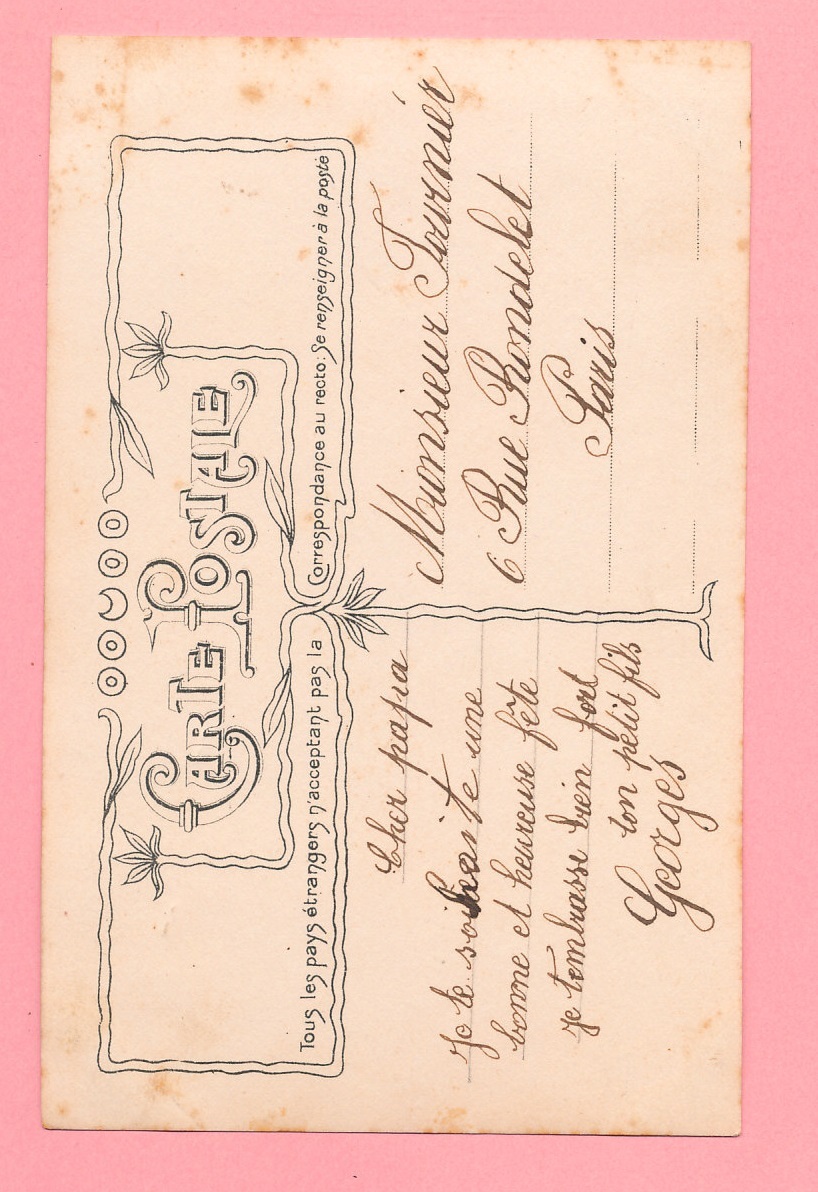 CARTE POSTALE
Tous les pays étrangers n'acceptant pas la Correspondance au recto: Se renseigner à la poste
Cher papa
Je te souhaite une
bonne et heureuse fête
je t'embrasse bien fort
ton petit fils
Georges
Monsieur Fournier
6 Rue Rondelet
Paris